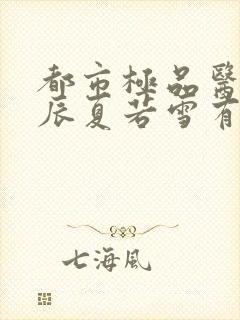 都市極品醫
辰夏若雪有
七海風